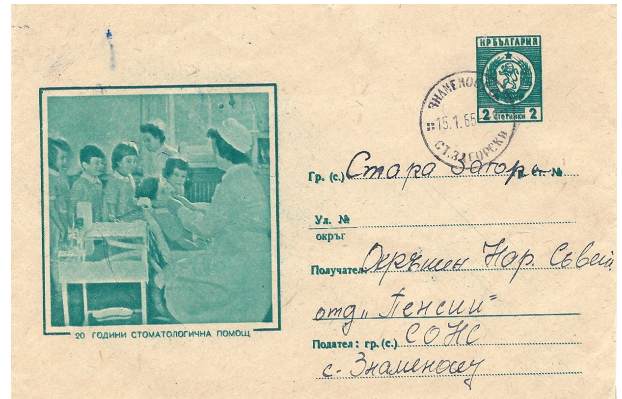 НРБЪЛГАРИЯ
2 СТОТИНКИ 2
15.1.65
СТ.ЗАГОРСКИ
Гр. (с.) Стара Загора П. ст. №
Ул. №
окръг
Получател: Окръжен Нар. Съвет
отд. „Пенсии“
Подател: гр. (с.) СОНС
с. Знаменосец
20 ГОДИНИ СТОМАТОЛОГИЧНА ПОМОЩ